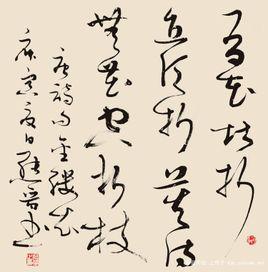 有花堪折
直须折莫待
無花空折枝
唐詩句金縷衣
庚寅夏日書